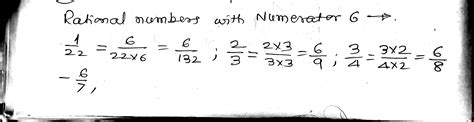 Rational numbers with Numerator 6 →.
1/22 = 6/22×6 = 6/132 ; 2/3 = 2×3/3×3 = 6/9 ; 3/4 = 3×2/4×2 = 6/8
- 6/7,